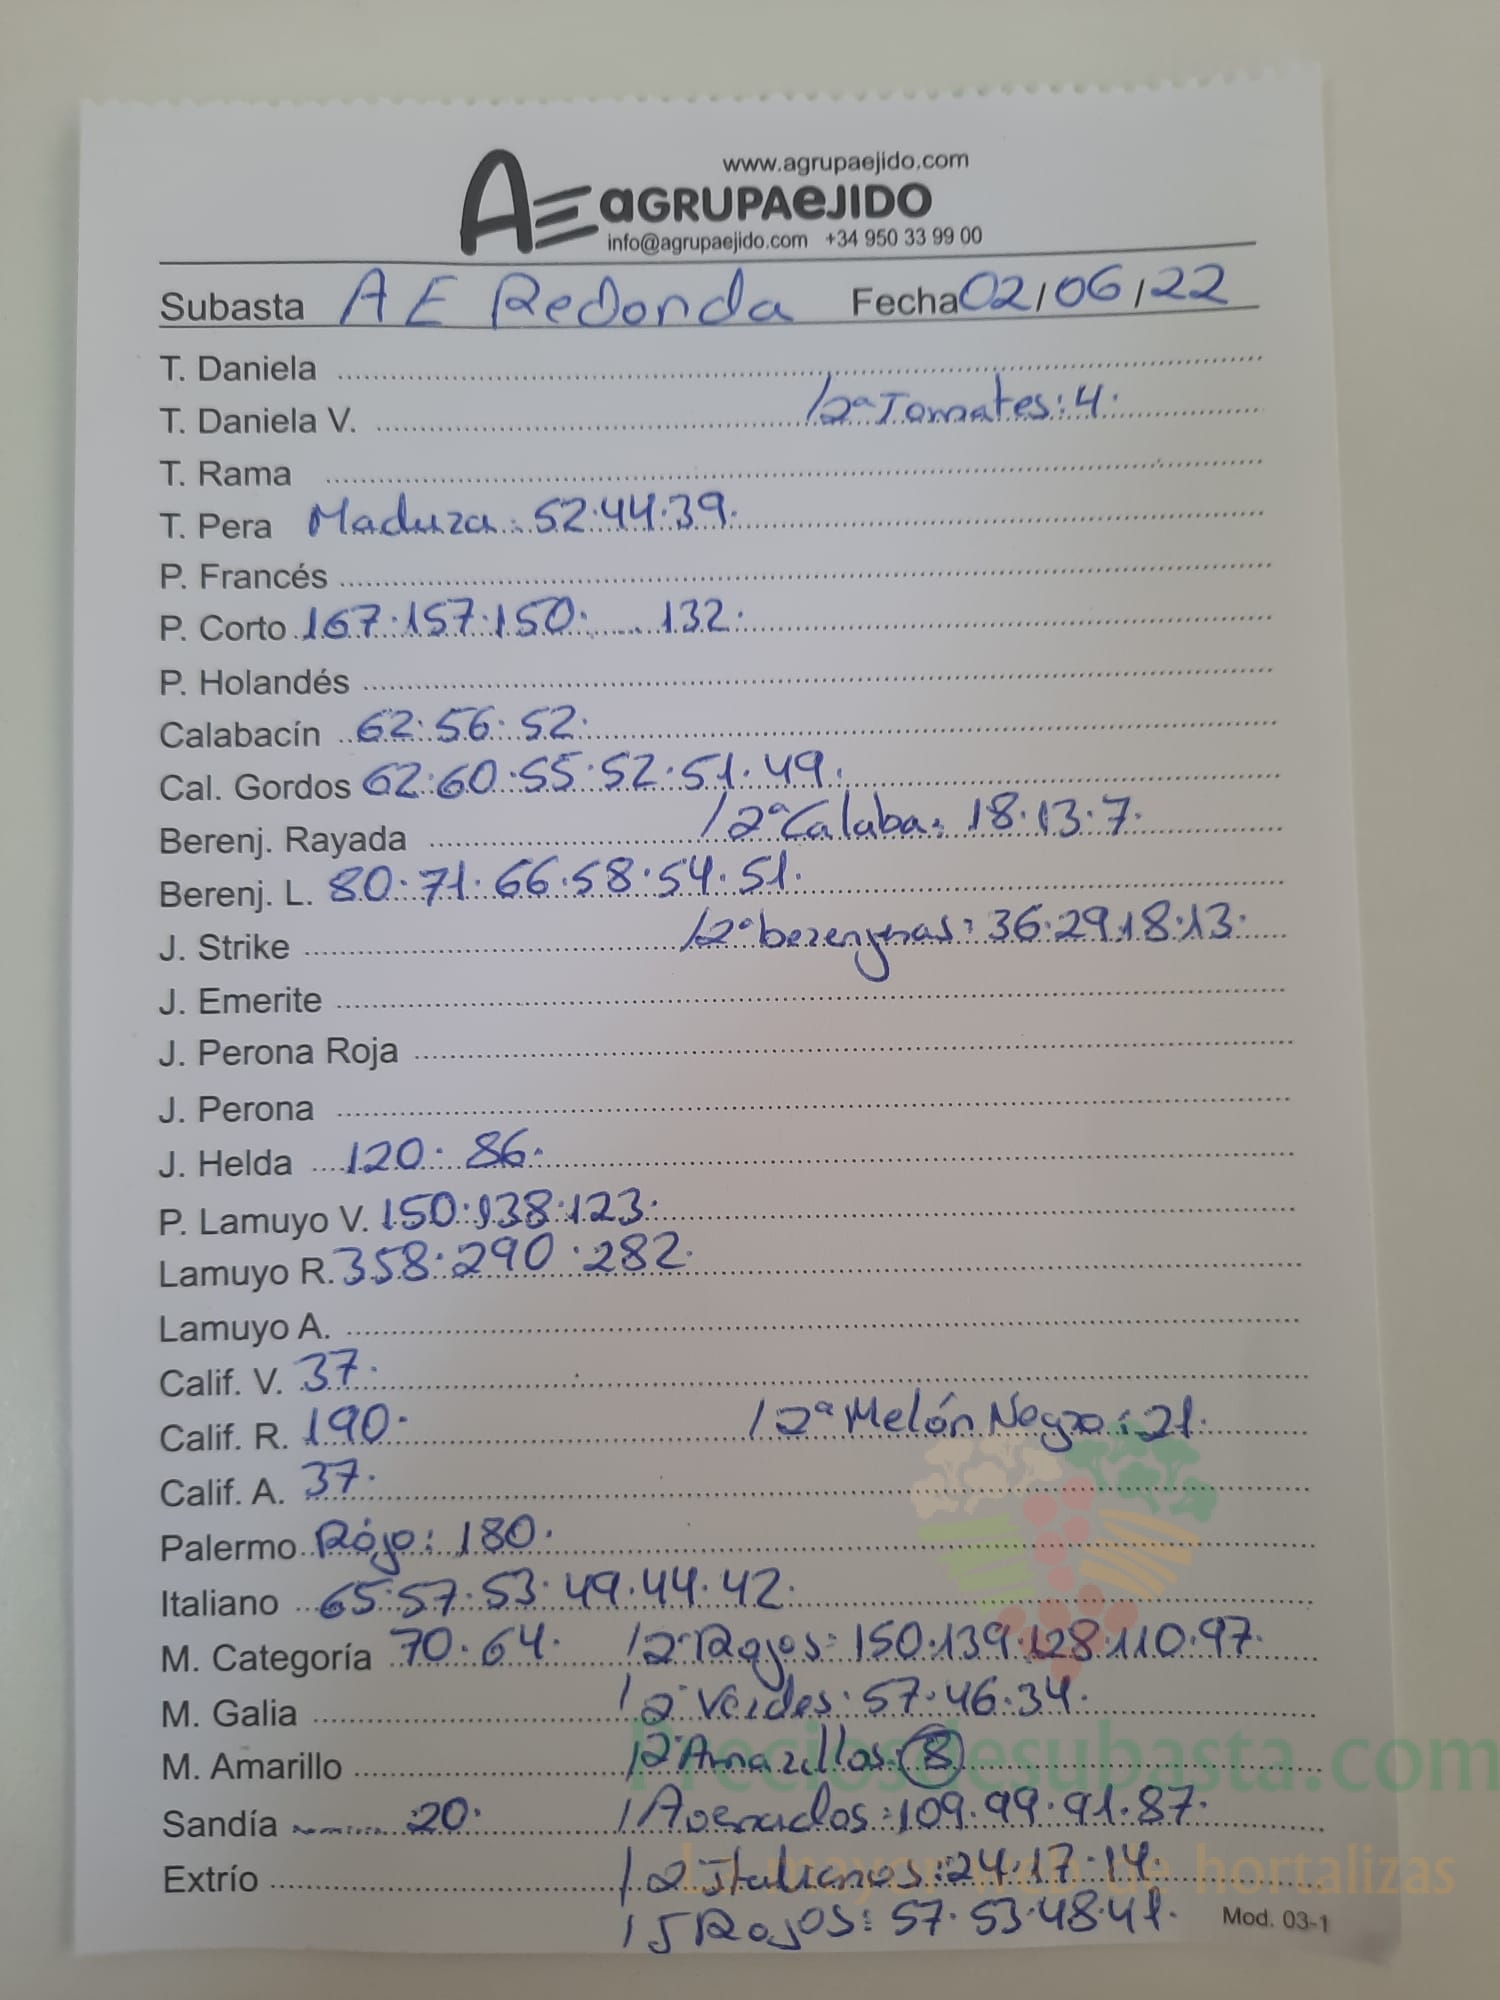 www.agrupaejido.com
AE aGRUPAeJIDO
info@agrupaejido.com +34 950 33 99 00
Subasta AE Redonda Fecha 02/06/22
T. Daniela
T. Daniela V. /2ª Tomates: 4.
T. Rama
T. Pera Madura: 52.44.39.
P. Francés
P. Corto 167.157.150. 132.
P. Holandés
Calabacín 62.56.52.
Cal. Gordos 62.60.55.52.51.49.
Berenj. Rayada /2ª Calaba: 18.13.7.
Berenj. L. 80.71.66.58.54.51.
J. Strike /2ª berenjenas: 36.29.18.13.
J. Emerite
J. Perona Roja
J. Perona
J. Helda 120. 86.
P. Lamuyo V. 150.138.123.
Lamuyo R. 358.290.282.
Lamuyo A.
Calif. V. 37.
Calif. R. 190. /2ª Melón Negro: 21.
Calif. A. 37.
Palermo Rojo: 180.
Italiano 65.57.53.49.44.42.
M. Categoría 70.64. /2ª Rojos: 150.139.128.110.97.
M. Galia /2ª Verdes: 57.46.34.
M. Amarillo /2ª Amarillos: 8
Preciosdesubasta.com
Sandía 20. /Asenados: 109.99.91.87.
La mayor web de hortalizas
Extrío /2ª Italianos: 24.17.14.
/5 Rojos: 57.53.48.41. Mod. 03-1